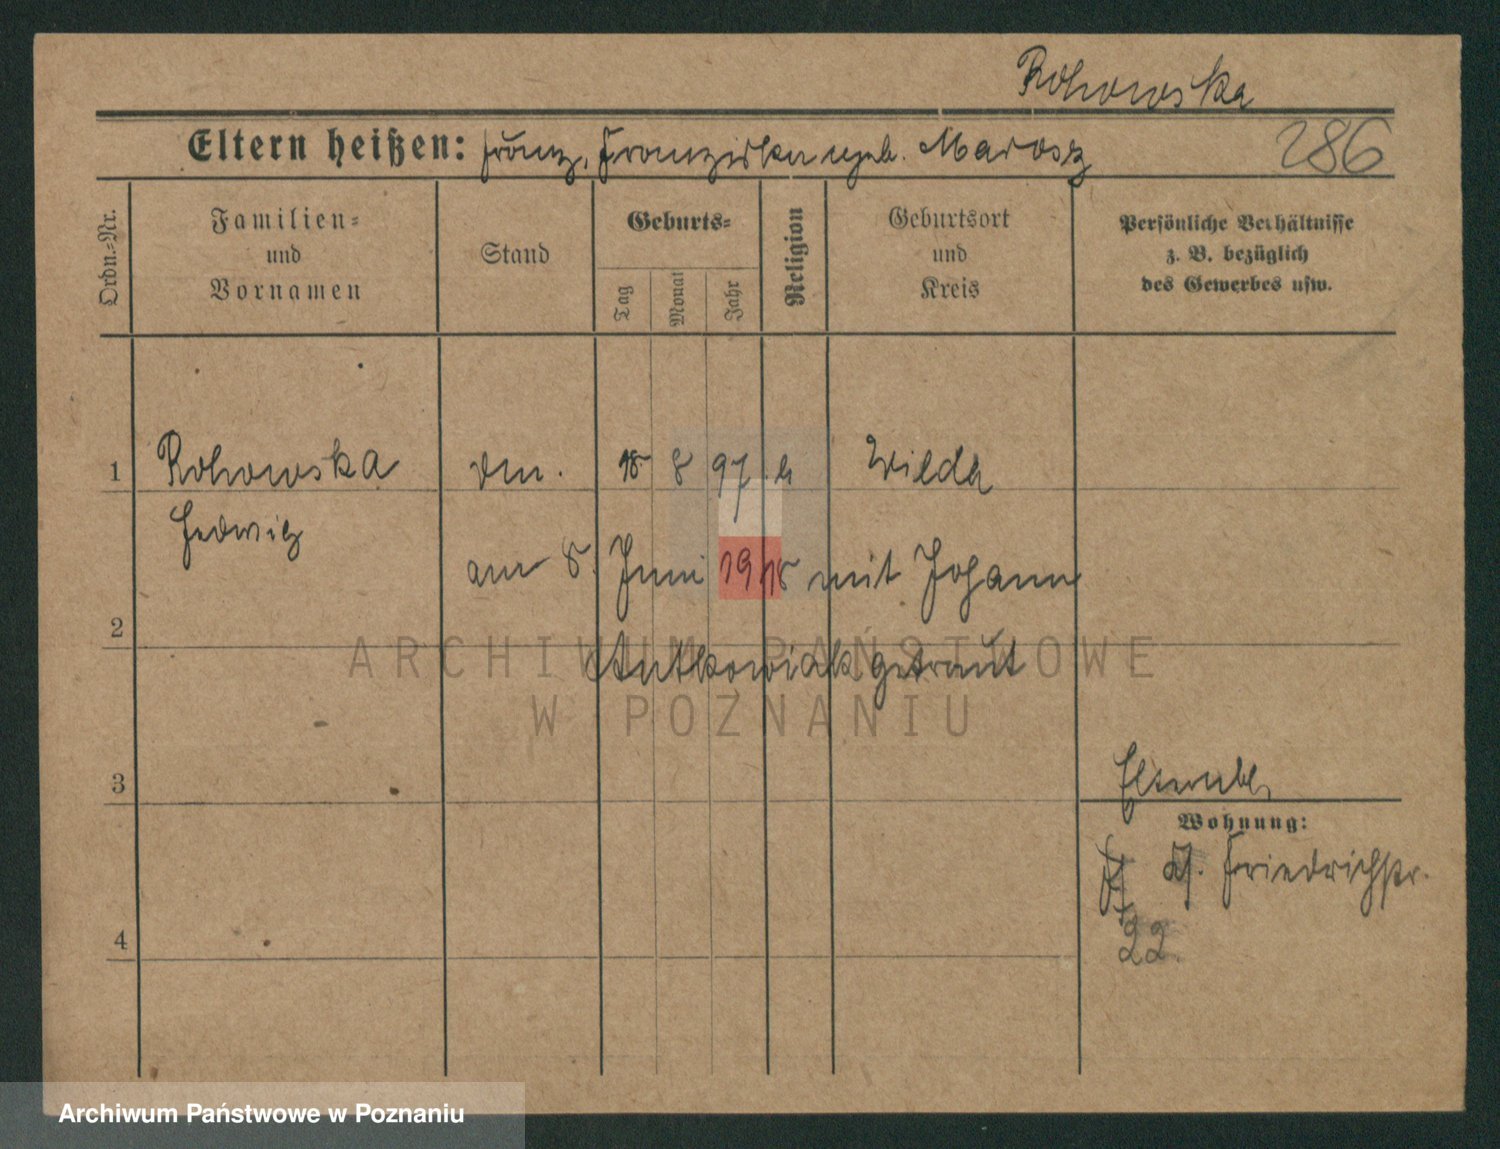 Rohowska
Eltern heißen: Franz, Franziska geb. Marosz
286
Ordn.-Nr.
Familien-
und
Vornamen
Stand
Geburts-
Tag
Monat
Jahr
Religion
Geburtsort
und
Kreis
Persönliche Verhältnisse
z. B. bezüglich
des Gewerbes usw.
1 Rohowska 18 8 97 k Wilda
Hedwig
am 8. Juni 1918 mit Johann
2
Antkowiak getraut
ARCHIWUM PAŃSTWOWE
W POZNANIU
3
Wohnung:
Friedrichstr.
22.
4
Archiwum Państwowe w Poznaniu